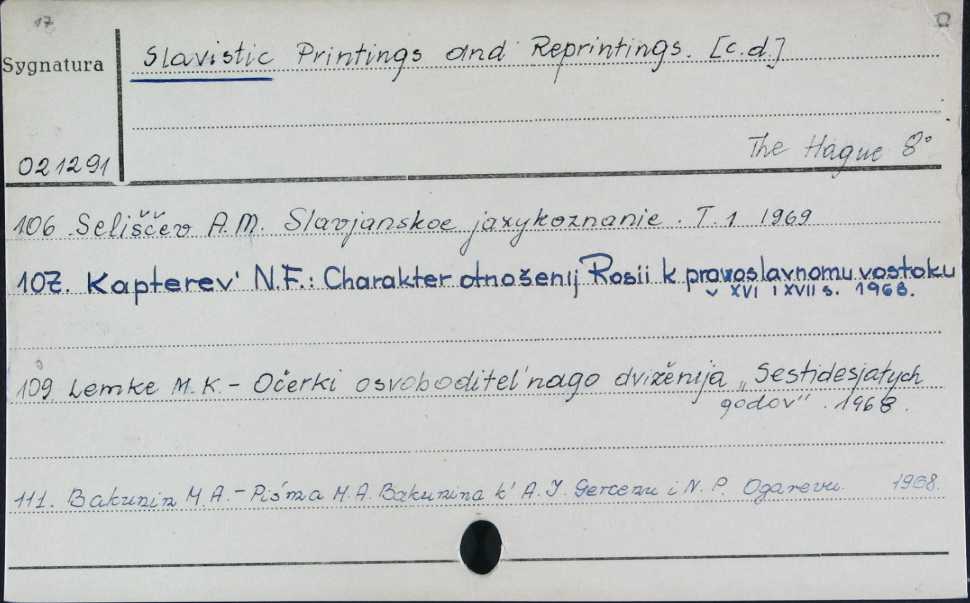 17
Slavistic Printings and Reprintings. [c.d.]
Sygnatura
The Hague 8°
021291
106 Seliščev A.M. Slavjanskoe jazykoznanie. T. 1 1969
107. Kapterev' N.F.: Charakter otnošenij Rosii k pravoslavnomu vostoku
v XVI i XVII s. 1968.
109 Lemke M.K. - Očerki osvoboditel'nago dviženija „Sestidesjatych
godov". 1968.
111. Bakunin M.A. - Pis'ma M.A. Bakunina k' A.I. Gercenu i N.P. Ogarevu. 1968.